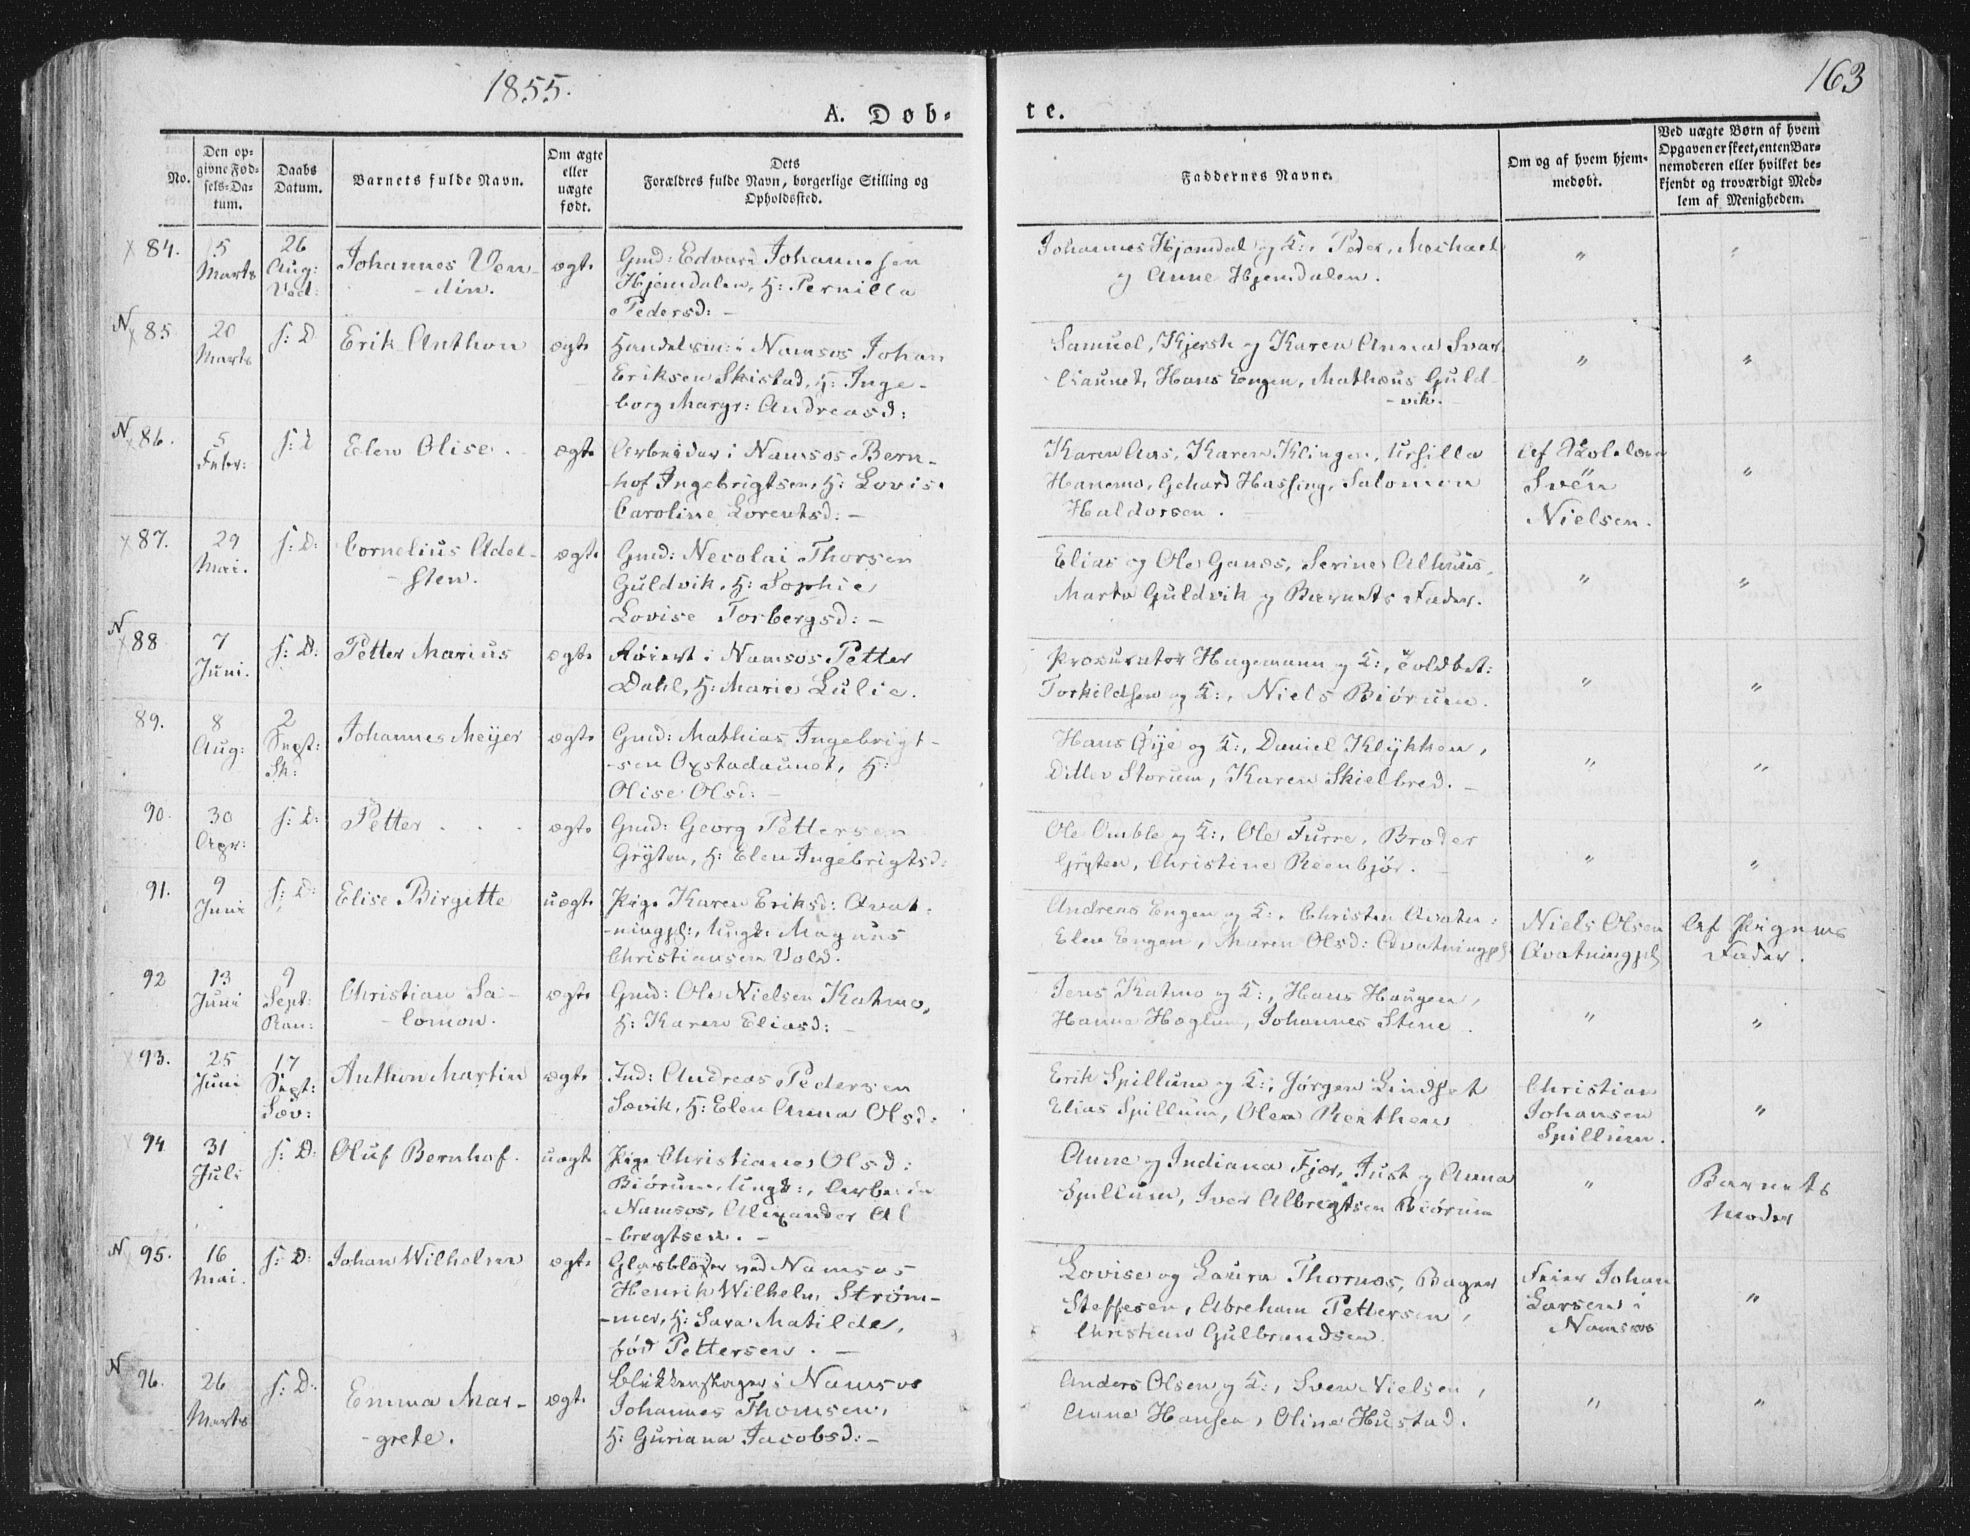 1855.
163
A. Døb-
te.
No.
Den op-
givne Fød-
sels-Da-
tum.
Daabs
Datum.
Barnets fulde Navn.
Om ægte
eller
uægte
født.
Dets
Forældres fulde Navn, borgerlige Stilling og
Opholdssted.
Faddernes Navne.
Om og af hvem hjem-
medøbt.
Ved uægte Børn af hvem
Opgaven er skeet, enten Bar-
nemoderen eller hvilket be-
kjendt og troværdigt Med-
lem af Menigheden.
x 84.
5
Marts
26
Aug:
Ved:
Johannes Ven-
-din.
ægte
Gmd: Edvard Johannesen
Hjemdalen, H: Pernilla
Pedersd: -
Johannes Hjemdal og K:, Peder, Meshach
og Anne Hjemdalen.
"
"
N
x 85
20
Marts
s: D
Erik Anthon
ægte
Handelsm: i Namsos Johan
Eriksen Skistad, H: Inge-
-borg Margr: Andreasd:
Samuel, Kjersti og Karen Anna Svar-
liaunet, Hans Engen, Mathæus Guld-
-vik.
"
"
N
x 86.
5
Febr:
s: D
Elen Olise.
ægte
Arbeider i Namsos Bern-
-hof Ingebrigtsen, H: Lovise
Caroline Lorentsd: -
Karen Aas, Karen Klingen, Ursilla
Hanemo, Gehard Hassing, Salomon
Haldorsen.
Af Skolelærer
Svën
Nielsen.
"
x 87.
29
Mai.
s: D:
Cornelius Adel-
-sten.
ægte
Gmd: Necolai Thorsen
Guldvik, H: Sophie
Lovise Torbergsd: -
Elias og Ole Ganæs, Serine Alhuus,
Marta Guldvik og Barnets Fader.
"
"
N
x 88
7
Juni.
s: D:
Petter Marius
ægte
Røiert i Namsos Petter
Dahl, H: Marie Lulie.
Prokurator Hagemann og K:, Toldbet:
Torkildsen og K:, Niels Biørum.
"
"
89.
8
Aug:
2
Sept:
Sk:
Johannes Meÿer
ægte
Gmd: Mathias Ingebrigt-
-sen Oxstadaunet, H:
Olise Olsd: -
Hans Øÿe og K:, Daniel Klÿkken,
Ditlev Storum, Karen Skielbred. -
"
"
90.
30
Apr:
s: D:
Petter . . .
ægte
Gmd: Georg Pettersen
Grÿten, H: Elen Ingebrigtsd:
Ole Omble og K:, Ole Furre, Broder
Grÿten, Christine Reenbjør.
"
"
91.
9
Juni
s: D:
Elise Birgitte
uægte
Pige Karen Eriksd: Avat-
-ningpl:, Ungk: Magnus
Christiansen Vold.
Andreas Engen og K:, Christen Avatn:
Elen Engen, Maren Olsd: Avatningpl:
Niels Olsen
Avatningpl:
Af Pigens
Fader.
92
13
Juni
9
Sept:
Ran:
Christian Sa-
-lomon.
ægte
Gmd: Ole Nielsen Katmo,
H: Karen Eliasd: -
Jens Katmo og K:, Hans Haugen,
Hanna Høglum, Johannes Stene.
"
"
x 93.
25
Juni
17
Sept:
Sæv:
Anthon Martin
ægte
Ind: Andreas Pedersen
Sævik, H: Elen Anna Olsd:
Erik Spillum og K:, Jørgen Lindset
Elias Spillum, Olea Renthen
Christian
Johansen
Spillum.
"
x 94
31
Juli
s: D:
Oluf Bernhof.
uægte
Pige Christiane Olsd:
Biørum, Ungk:, Arbe: in
Namsos, Alexander Al-
-bregtsen. -
Anne og Indiana Fjær, Just og Anna
Spillum, Iver Albregtsen Biørum
"
Barnets
Moder
N
x 95.
16
Mai.
s: D:
Johan Wilhelm
ægte
Glasblæser ved Namsos
Henrik Wilhelm Strøm-
-mer, H: Sara Matilde,
fød Pettersen. -
Lovise og Laura Thornæs, Bager
Steffesen, Abraham Pettersen,
Christian Gulbrandsen.
Feier Johan
Larsen i
Namsos
"
N
96.
26
Marts
s: D:
Emma Mar-
-grete.
ægte
Blikkenslager i Namsos
Johannes Thomsen,
H: Guriana Jacobsd: -
Anders Olsen og K:, Sven Nielsen,
Anne Hansen, Oline Hustad.
"
"